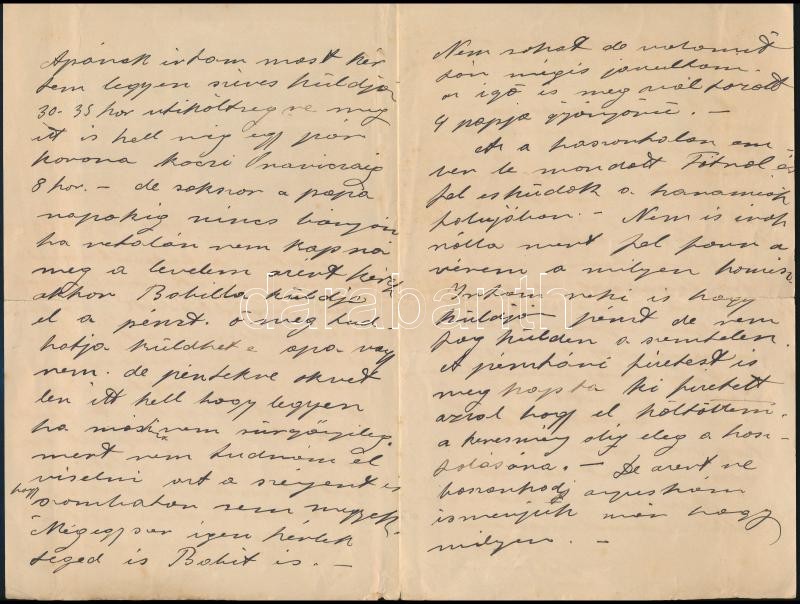 Apának irtam most kér
tem legyen szives küldjön
30-35 kor utiköltségre meg
itt is kell vig egy pár
korona kocsi naviczaig
8 kor. – de sokszor a papa
napokig nincs
ha netalán nem kapná
meg a levelem azért kérlek
akkor Bobilla küldje
el a pénzt. ő meg tud
hatja küldhet e apa vagy
nem. de péntekre okvet
len itt kell hogy legyen
ha másk nem sürgönyileg.
mert nem tudnám el
viselni azt a szégyent és
hogy szombaton nem megyek.
Mégegyszer igen kérlek
téged is Bobit is. –
Nem sokat de valamit
tán mégis javultam.
az igő is meg változott
4 napja gyönyörű. –
Az a haszontalan em-
ber le mondott Titról és
fel esküdött a
falujában. – Nem is irok
rólla mert fel forr a
vérem a milyen komisz
Irtam neki is hogy
küldjön pénzt de nem
fog küldeni a szemtelen.
A fizetést is
meg kapta ki fizetett
azzal hogy el költöttem.
a keresmény alig elég a kosz-
tolására. – De azért ne
bosszankodj anyuskám
ismerjük már hogy
milyen. –
darabanth